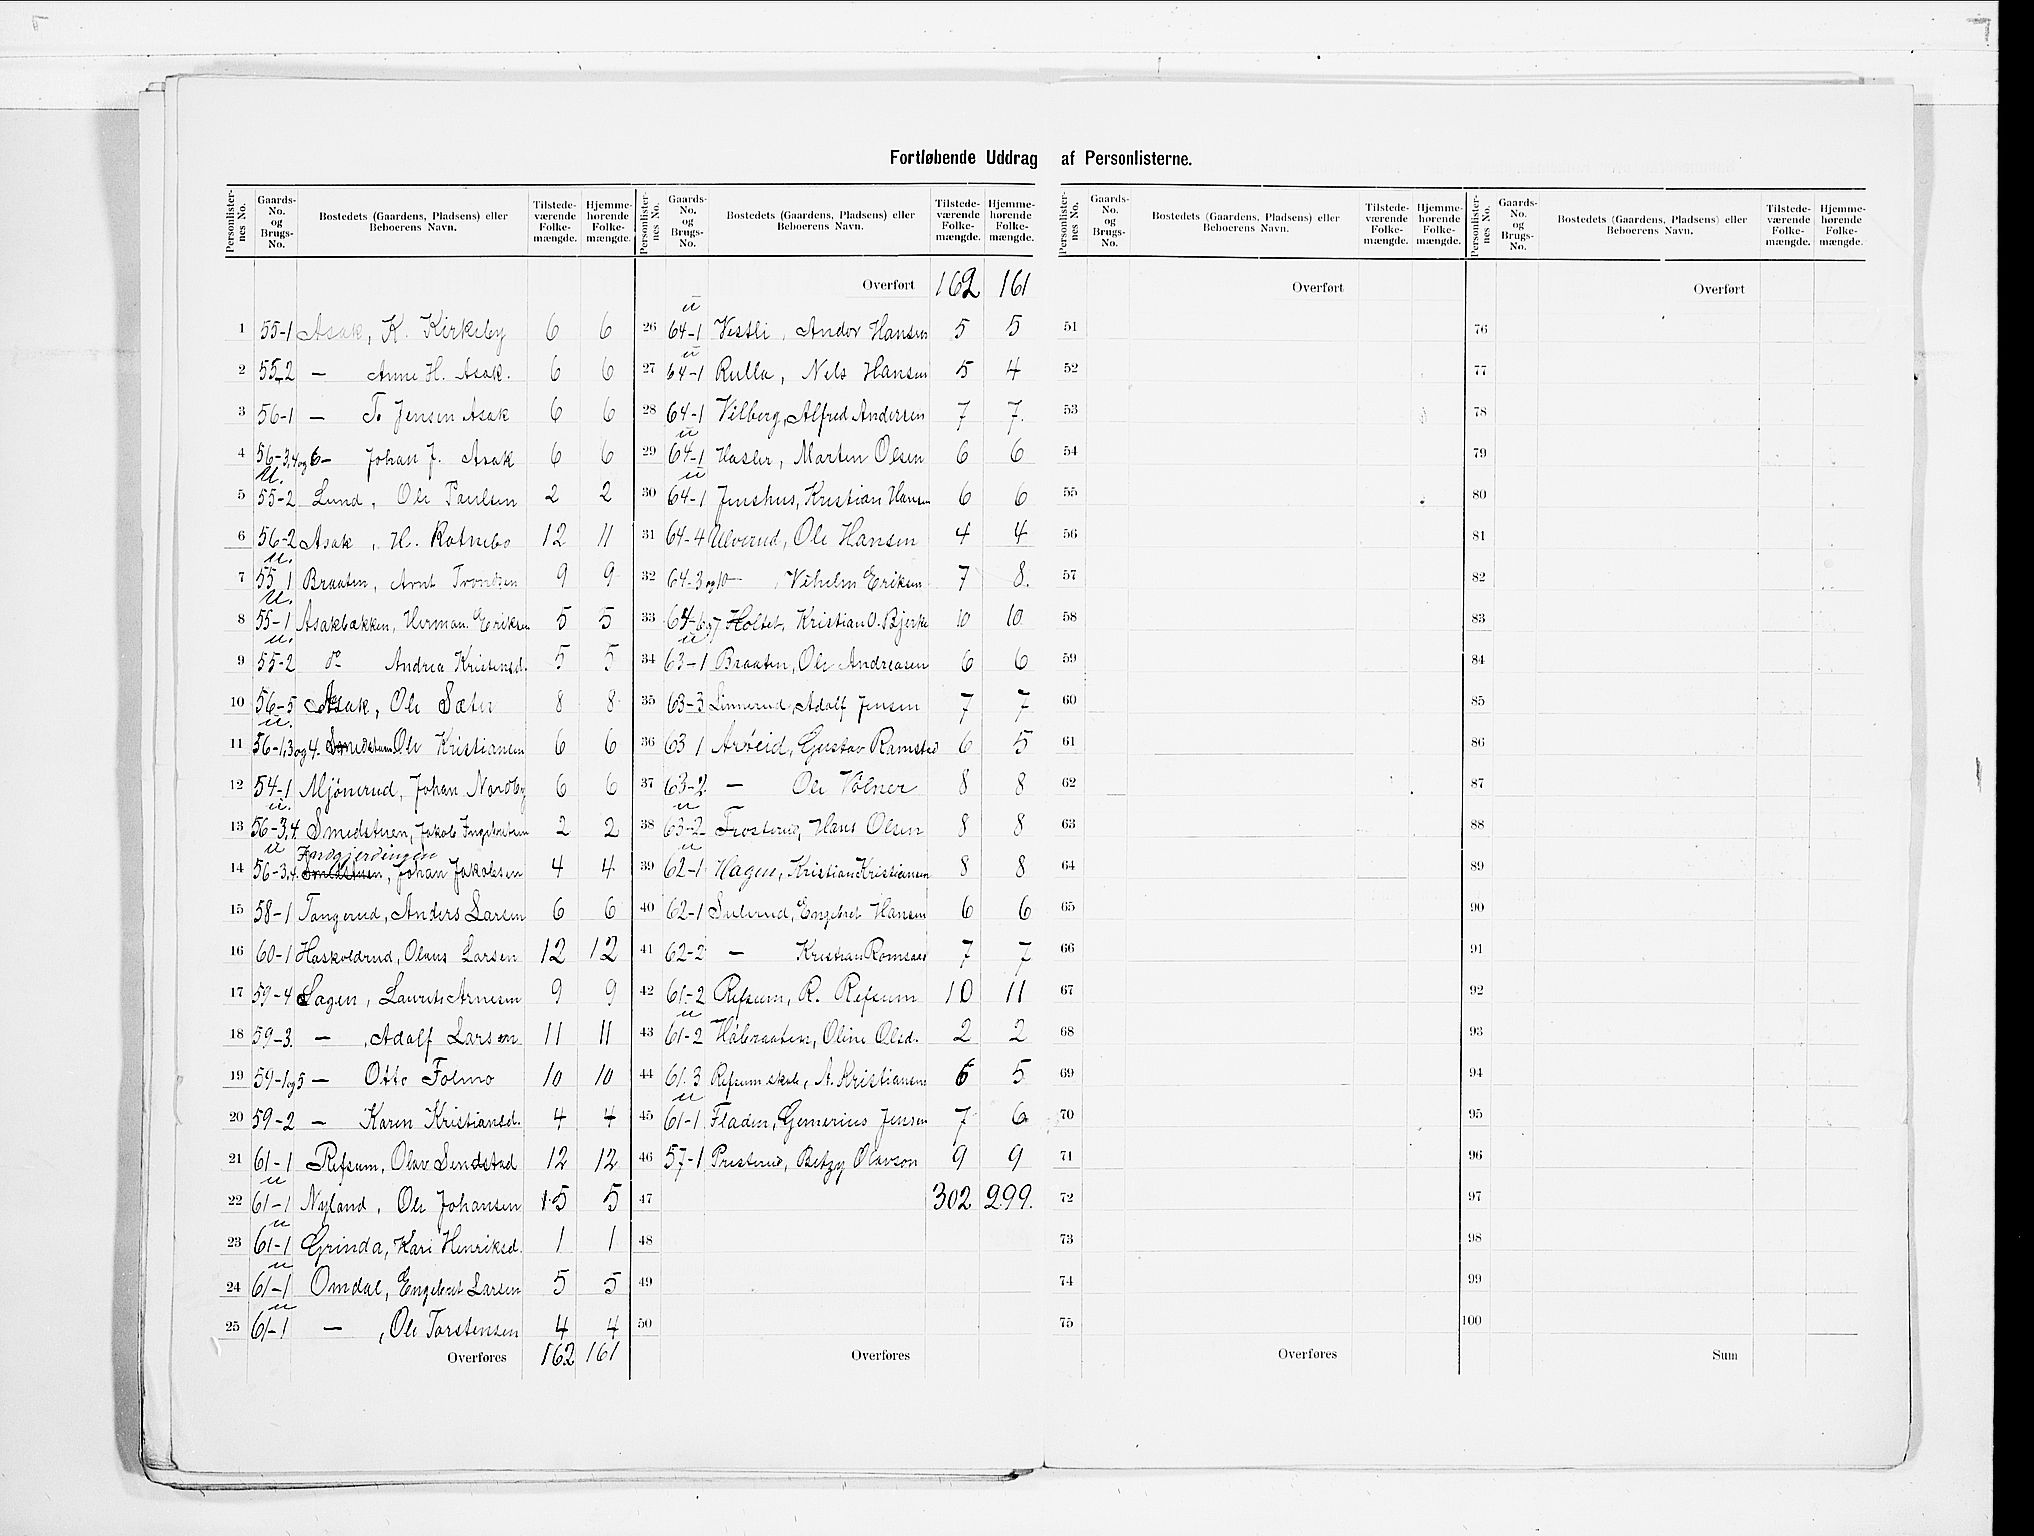 Fortløbende Uddrag af Personlisterne.
Personlister- nes No. | Gaards- No. og Brugs- No. | Bostedets (Gaardens, Pladsens) eller Beboerens Navn. | Tilstede- værende Folke- mængde. | Hjemme- hørende Folke- mængde.
1 55-1 Asak, K. Kirkeby 6 6
2 55-2 — Anne H. Asak. 6 6
3 56-1 — T. Jensen Asak 6 6
4 56-3,4 og 6 — Johan J. Asak 6 6
5 U. 55-2 Lund, Ole Paulsen 2 2
6 56-2 Asak, H. Kotnebo 12 11
7 U. 55-1 Braaten, Arnt Trondsen 9 9
8 U. 55-1 Asakbakken, Herman Eriksen 5 5
9 u. 55-2 do Andrea Kristensd. 5 5
10 56-5 Asak, Ole Sæter 8 8
11 u. 56-1,3 og 4. Smedstuen Ole Kristiansen 6 6
12 54-1 Mjönerud, Johan Nordby 6 6
13 u. 56-3,4 Smedstuen, Jakob Ingebretsen 2 2
14 u 56-3,4. Smedstuen, Johan Jakobsen 4 4
15 58-1 Tangerud, Anders Larsen 6 6
16 60-1 Haskoldrud, Olaus Larsen 12 12
17 59-4 Lagen, Laurits Arnesen 9 9
18 59-3. — , Adolf Larsen 11 11
19 59-1 og 5 — Otto Folmo 10 10
20 59-2 — Karen Kristiansd. 4 4
21 61-1 Refsum, Olav Sendstad 12 12
22 u 61-1 Nyland, Ole Johansen 5 5
23 u 61-1 Grinda, Kari Henriksd. 1 1
24 u 61-1 Omdal, Engebret Larsen 5 5
25 u 61-1 — , Ole Torstensen 4 4
Overføres 162 161
Personlister- nes No. | Gaards- No. og Brugs- No. | Bostedets (Gaardens, Pladsens) eller Beboerens Navn. | Tilstede- værende Folke- mængde. | Hjemme- hørende Folke- mængde.
Overført 162 161
26 u 64-1 Vestli, Andor Hansen 5 5
27 u 64-1 Rulla, Nels Hansen 5 4
28 64-1 Vilberg, Alfred Andersen 7 7.
29 u 64-1 Hasler, Marten Olsen 6 6
30 u 64-1 Jenshus, Kristian Hansen 6 6
31 64-4 Ulverud, Ole Hansen 4 4
32 64-3 og 10 — , Vihelm Eriksen 7 8.
33 64-6 og 7 Holtet, Kristian O. Bjerke 10 10
34 u 63-1 Braaten, Ole Andreasen 6 6
35 63-3 Linnerud, Adolf Jensen 7 7
36 63 1 Arøeid, Gustav Ramstad 6 5
37 63-2 — Ole Volner 8 8
38 u 63-2 Trosterud, Hans Olsen 8 8
39 u 62-1 Hagen, Kristian Kristiansen 8 8
40 62-1 Sulerud, Engebret Hansen 6 6
41 62-2 — Kristian Romsaas 7 7
42 61-2 Refsum, R. Refsum 10 11
43 u 61-2 Høbraaten, Oline Olsd. 2 2
44 61.3 Refsum skole, A. Kristiansen 6 5
45 u 61-1 Fladen, Gemerius Jensen 7 6
46 57-1 Presterud, Betzy Olavson 9 9
47 302 299.
48
49
50
Overføres
Personlister- nes No. | Gaards- No. og Brugs- No. | Bostedets (Gaardens, Pladsens) eller Beboerens Navn. | Tilstede- værende Folke- mængde. | Hjemme- hørende Folke- mængde.
Overført
51
52
53
54
55
56
57
58
59
60
61
62
63
64
65
66
67
68
69
70
71
72
73
74
75
Overføres
Personlister- nes No. | Gaards- No. og Brugs- No. | Bostedets (Gaardens, Pladsens) eller Beboerens Navn. | Tilstede- værende Folke- mængde. | Hjemme- hørende Folke- mængde.
Overført
76
77
78
79
80
81
82
83
84
85
86
87
88
89
90
91
92
93
94
95
96
97
98
99
100
Sum